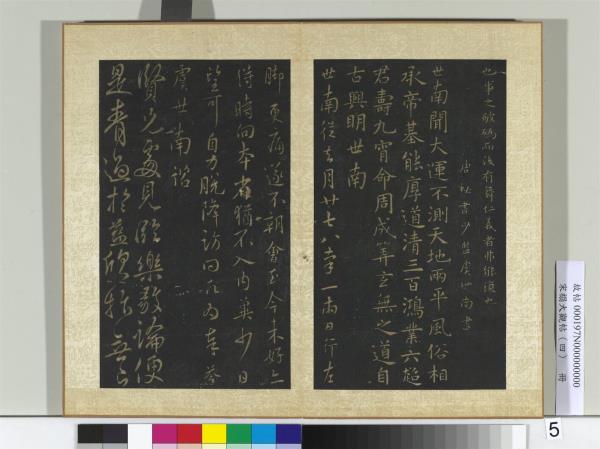 也事之破碼而後有舞仁義者弗能復也
唐秘書少監虞世南書
世南聞大運不測天地兩平風俗相
承帝基能厚道清三百鴻業六超
君壽九霄命周成筭玄無之道自
古興明世南
世南從去月廿七八率一兩日行左
脚更痛遂不朝會至今未好亦
得時向本省猶不入內冀少日
皆可自力脫降訪問願為奉答
虞世南諮
賢兄處見臨樂毅論便
是青過於藍欣抃無已
故帖 000197N000000000
宋搨大觀帖(四) 冊
5